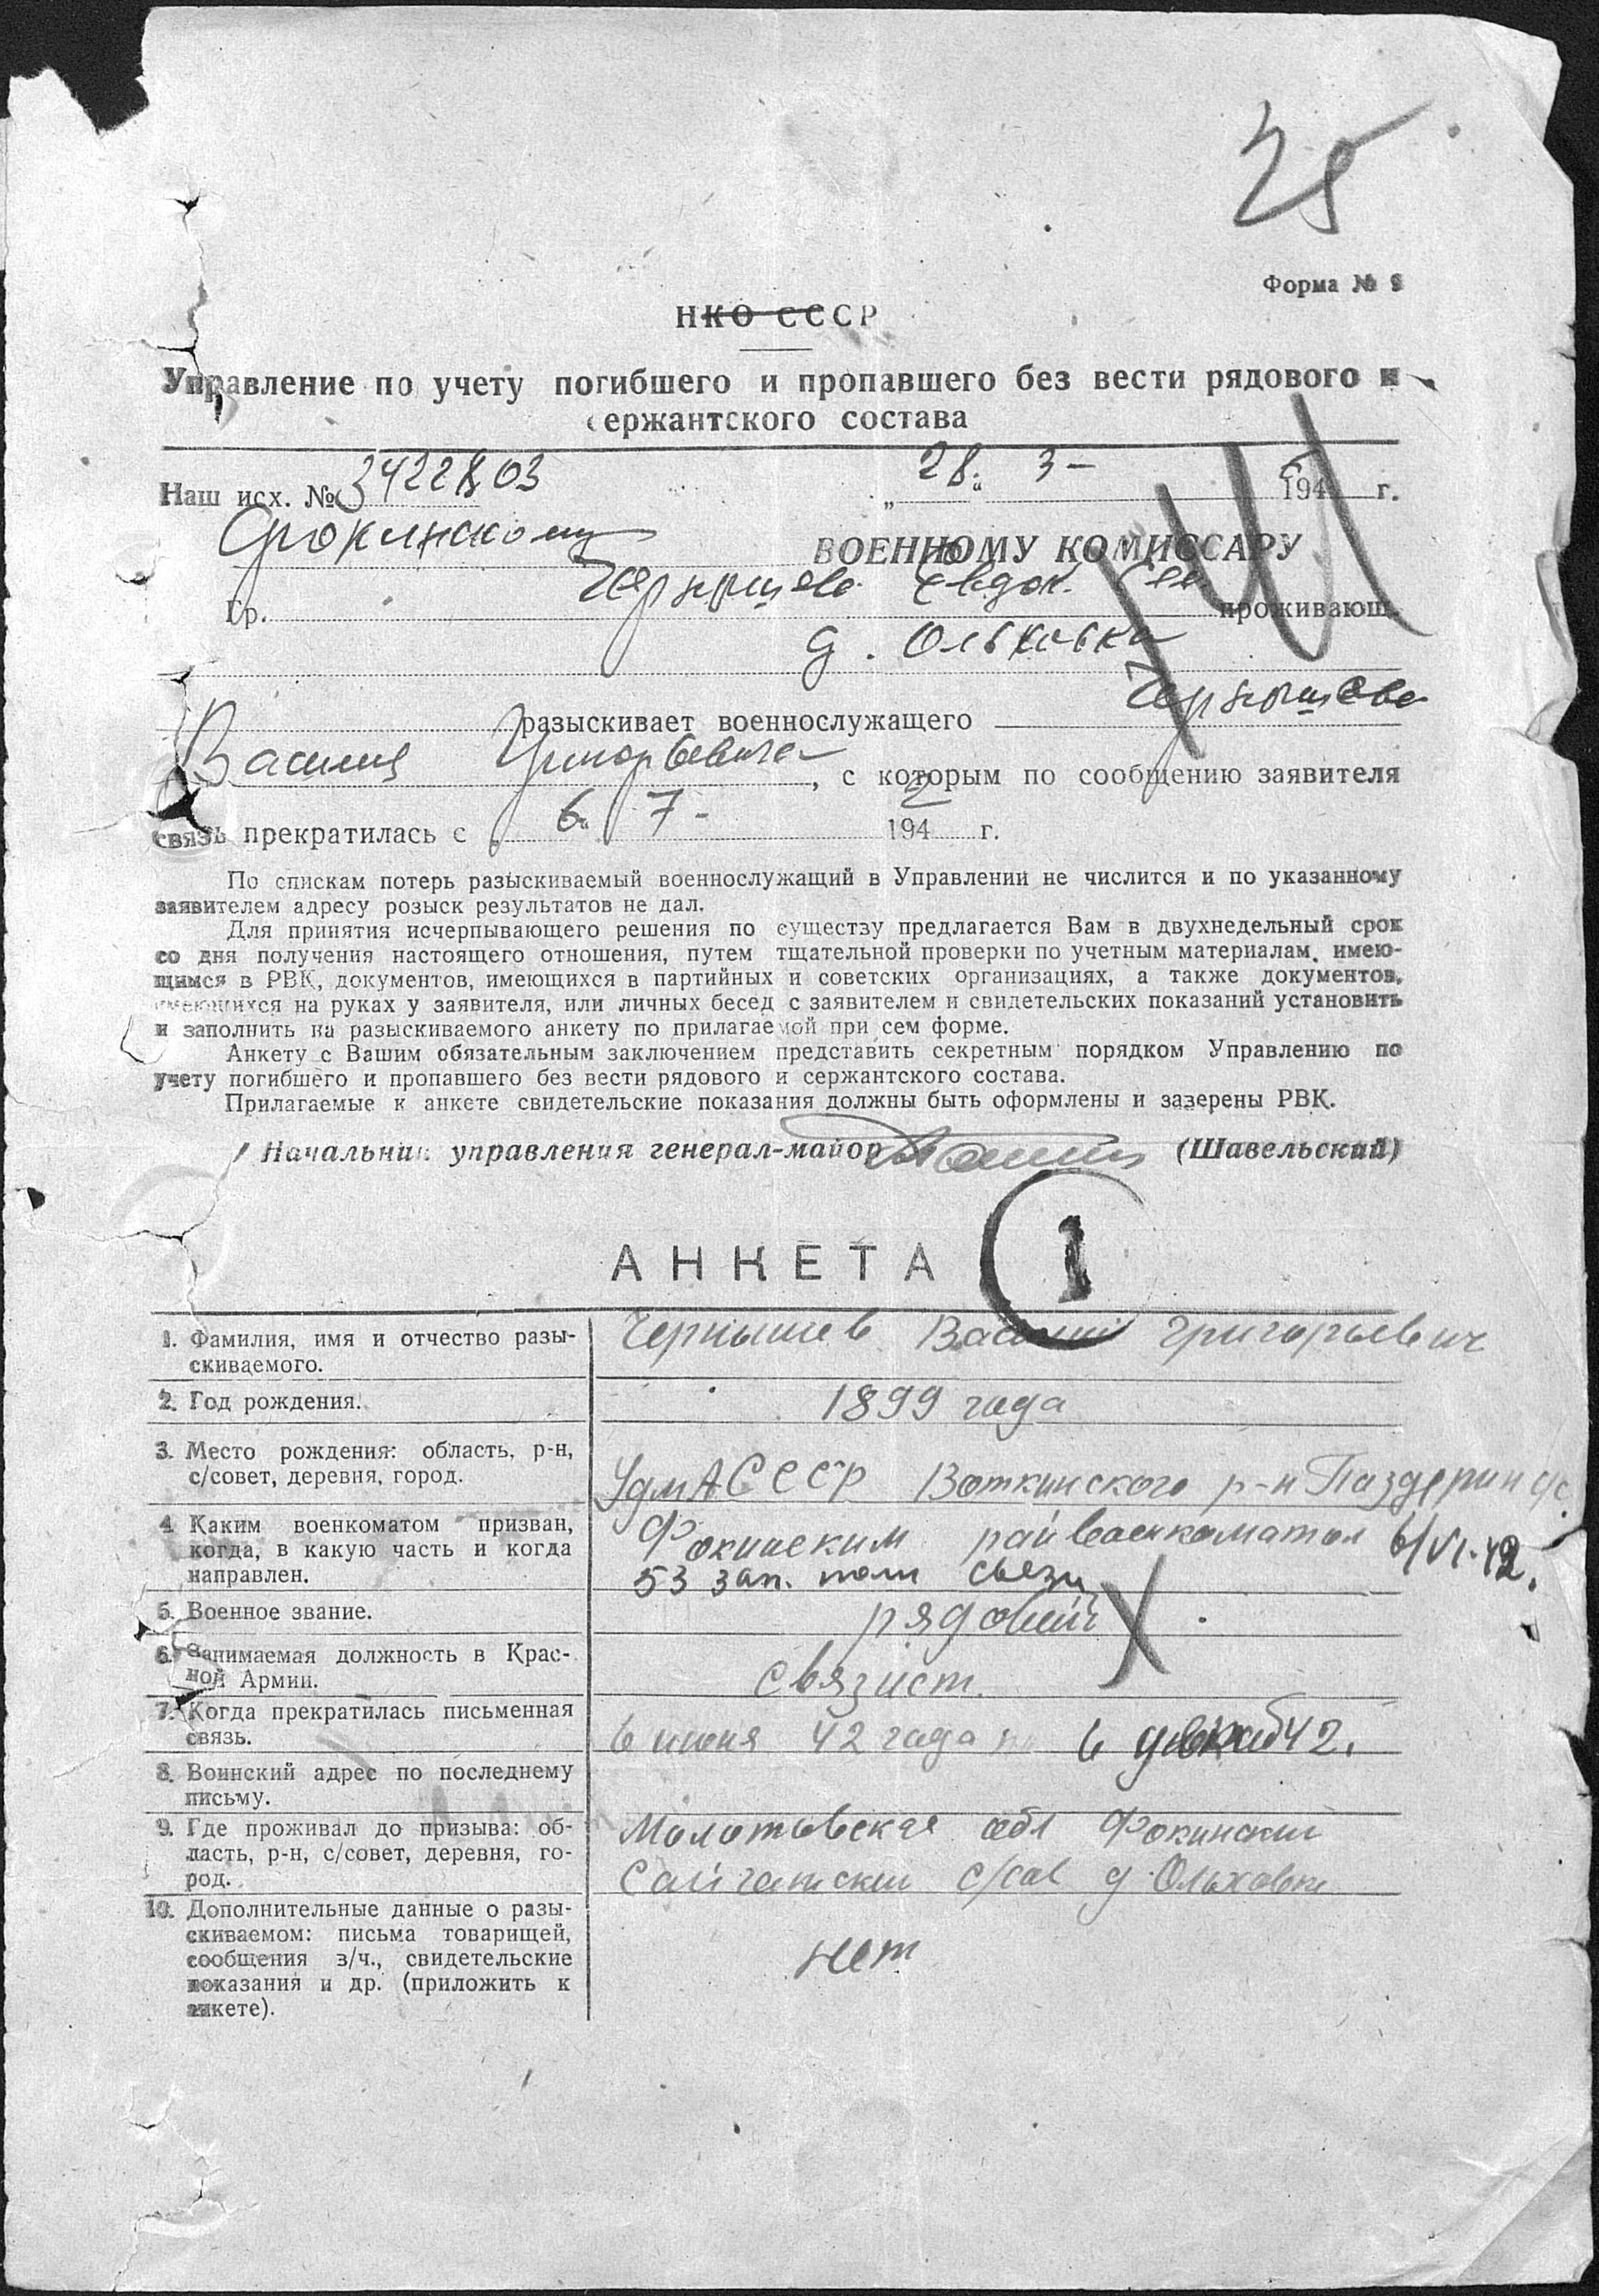 25
Форма № 9
НКО СССР
Управление по учету погибшего и пропавшего без вести рядового и
сержантского состава
Наш исх. № 3422803 „28“ 3- 194 г.
Фокинскому ВОЕННОМУ КОМИССАРУ
Гр. Чернышева Евдок. проживающ.
д. Ольховка
разыскивает военнослужащего Чернышева
Василия Григорьевича, с которым по сообщению заявителя
связь прекратилась с „6“ 7- 1942 г.
По спискам потерь разыскиваемый военнослужащий в Управлении не числится и по указанному
заявителем адресу розыск результатов не дал.
Для принятия исчерпывающего решения по существу предлагается Вам в двухнедельный срок
со дня получения настоящего отношения, путем тщательной проверки по учетным материалам, имею-
щимся в РВК, документов, имеющихся в партийных и советских организациях, а также документов,
имеющихся на руках у заявителя, или личных бесед с заявителем и свидетельских показаний установить
и заполнить на разыскиваемого анкету по прилагаемой при сем форме.
Анкету с Вашим обязательным заключением представить секретным порядком Управлению по
учету погибшего и пропавшего без вести рядового и сержантского состава.
Прилагаемые к анкете свидетельские показания должны быть оформлены и заверены РВК.
Начальник управления генерал-майор (Шавельский)
АНКЕТА 1
1. Фамилия, имя и отчество разы-
скиваемого.
Чернышев Василий Григорьевич
2. Год рождения.
1899 года
3. Место рождения: область, р-н,
с/совет, деревня, город.
УдмАССР Воткинского р-н Паздерин
4. Каким военкоматом призван,
когда, в какую часть и когда
направлен.
Фокинским райвоенкоматом 6/VI-42.
53 зап. полк связи
5. Военное звание.
рядовой
6. Занимаемая должность в Крас-
ной Армии.
связист.
7. Когда прекратилась письменная
связь.
6 июня 42 года 6 42.
8. Воинский адрес по последнему
письму.
9. Где проживал до призыва: об-
ласть, р-н, с/совет, деревня, го-
род.
Молотовская обл Фокинский
Сайгатский с/сов д. Ольховка
10. Дополнительные данные о разы-
скиваемом: письма товарищей,
сообщения з/ч., свидетельские
показания и др. (приложить к
анкете).
нет